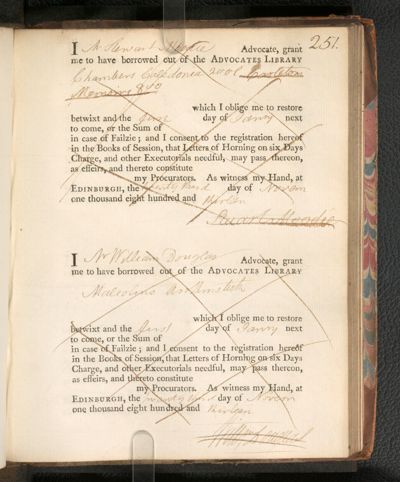 251.
I Mr Stewart Moodie Advocate, grant
me to have borrowed out of the ADVOCATES LIBRARY
Chambers Caledonia 2 vol
Memoirs 8vo
which I oblige me to restore
betwixt and the first day of Janry next
to come, or the Sum of
in case of Failzie; and I consent to the registration hereof
in the Books of Session, that Letters of Horning on six Days
Charge, and other Executorials needful, may pass thereon,
as effeirs, and thereto constitute
my Procurators. As witness my Hand, at
EDINBURGH, the day of Novem
one thousand eight hundred and thirteen
Stuart Moodie
I Mr William Douglas Advocate, grant
me to have borrowed out of the ADVOCATES LIBRARY
Malcolms
which I oblige me to restore
betwixt and the first day of Janry next
to come, or the Sum of
in case of Failzie; and I consent to the registration hereof
in the Books of Session, that Letters of Horning on six Days
Charge, and other Executorials needful, may pass thereon,
as effeirs, and thereto constitute
my Procurators. As witness my Hand, at
EDINBURGH, the day of Novem
one thousand eight hundred and thirteen